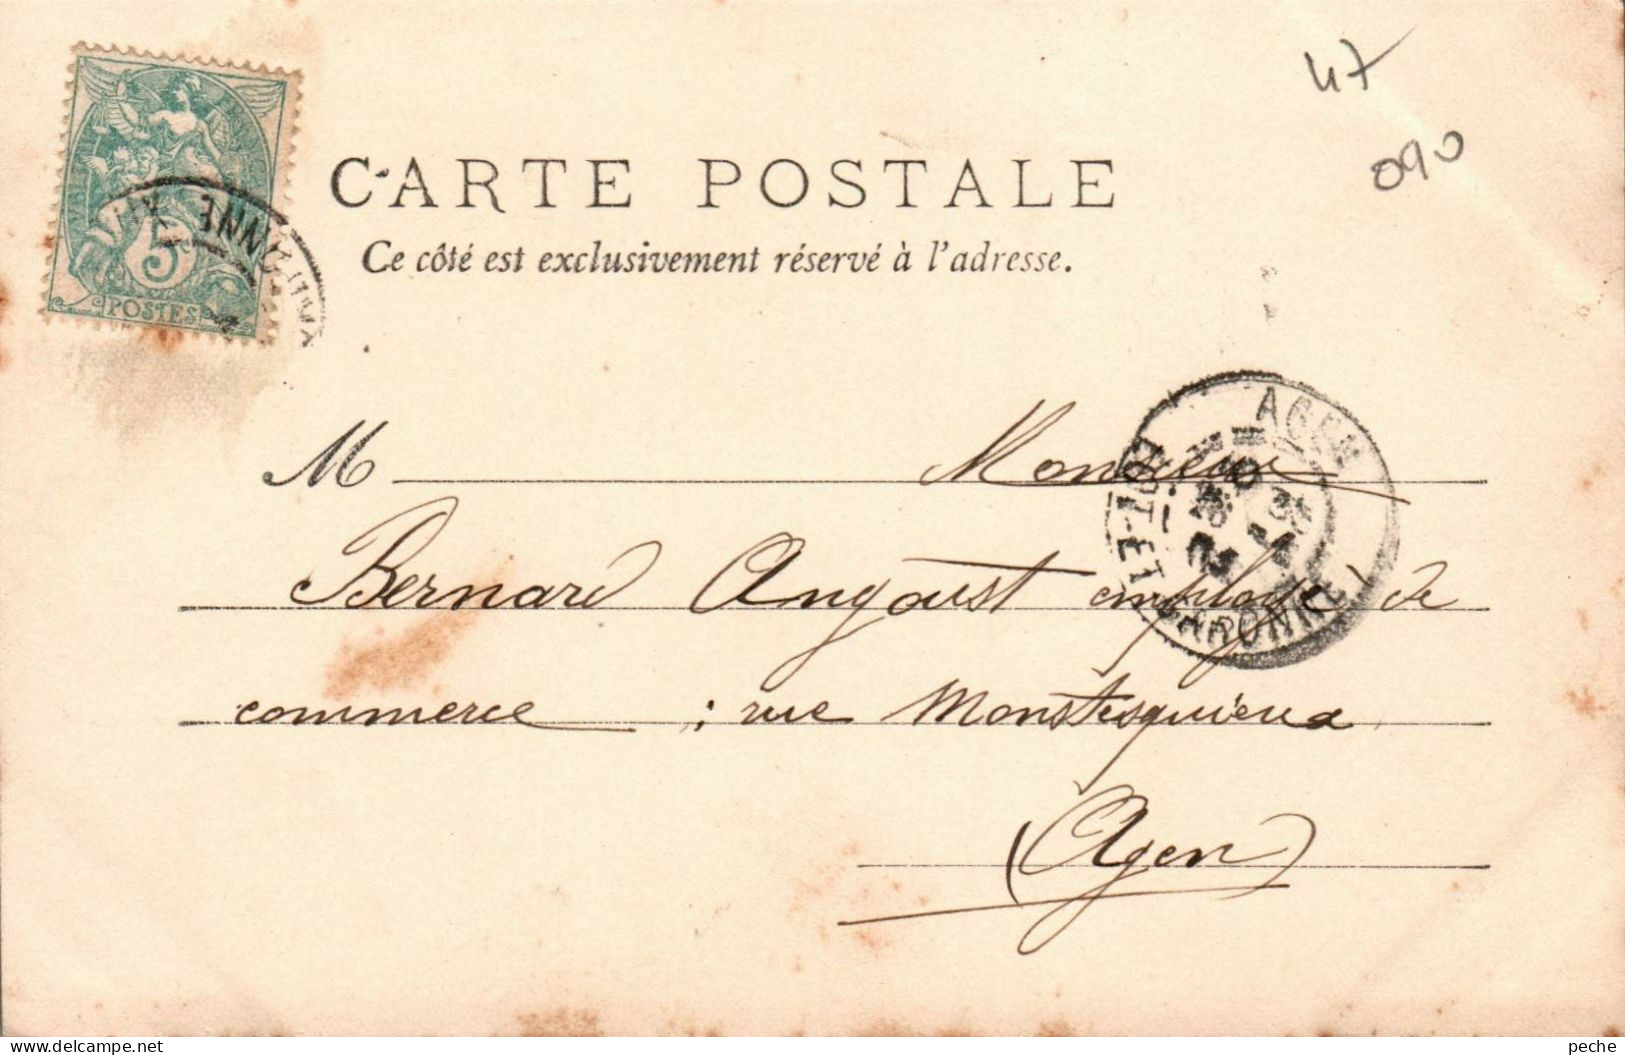 47
090
CARTE POSTALE
Ce côté est exclusivement réservé à l'adresse.
5c
POSTES
AGEN
LOT-ET-GARONNE
M Monsieur
Bernard Angoust employé de
commerce ; rue Monstesquieux
(Agen)
peche